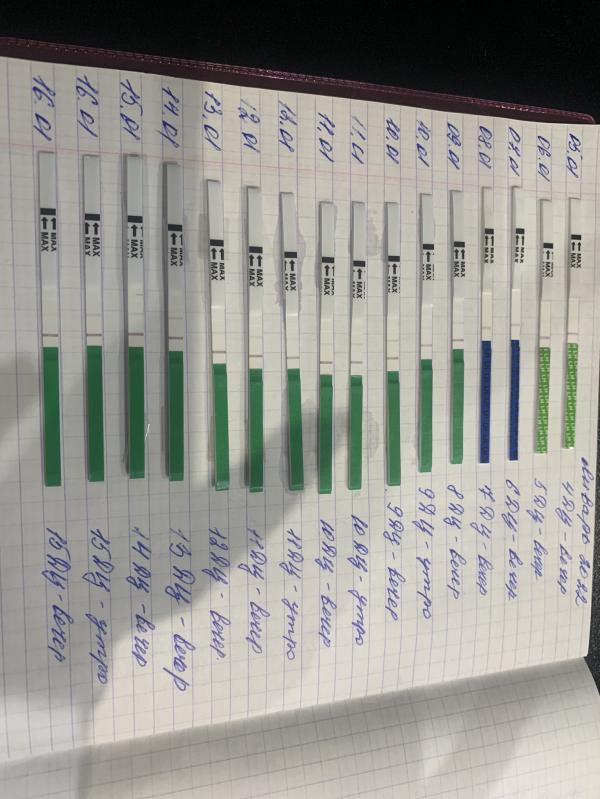 январь 2022
05.01 MAX 4 ДЦ - вечер
06.01 MAX 5 ДЦ - вечер
07.01 MAX 6 ДЦ - вечер
08.01 MAX 7 ДЦ - вечер
09.01 MAX 8 ДЦ - вечер
10.01 MAX 9 ДЦ - утро
10.01 MAX 9 ДЦ - вечер
11.01 MAX 10 ДЦ - утро
11.01 MAX 10 ДЦ - вечер
12.01 MAX MAX 11 ДЦ - утро
12.01 MAX MAX 11 ДЦ - вечер
13.01 MAX MAX 12 ДЦ - вечер
14.01 MAX 13 ДЦ - вечер
15.01 MAX 14 ДЦ - вечер
16.01 MAX MAX 15 ДЦ - утро
16.01 MAX MAX 15 ДЦ - вечер